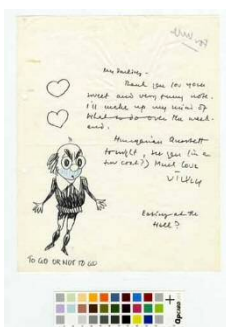 My darling -
Thank you for your
sweet and very funny note.
I'll make up my mind of
what to do over the week-
end.
Hungarian Quartett
tonight, see you (in a
new coat?) Much love
Eating at the
Hall?
TO GO OR NOT TO GO